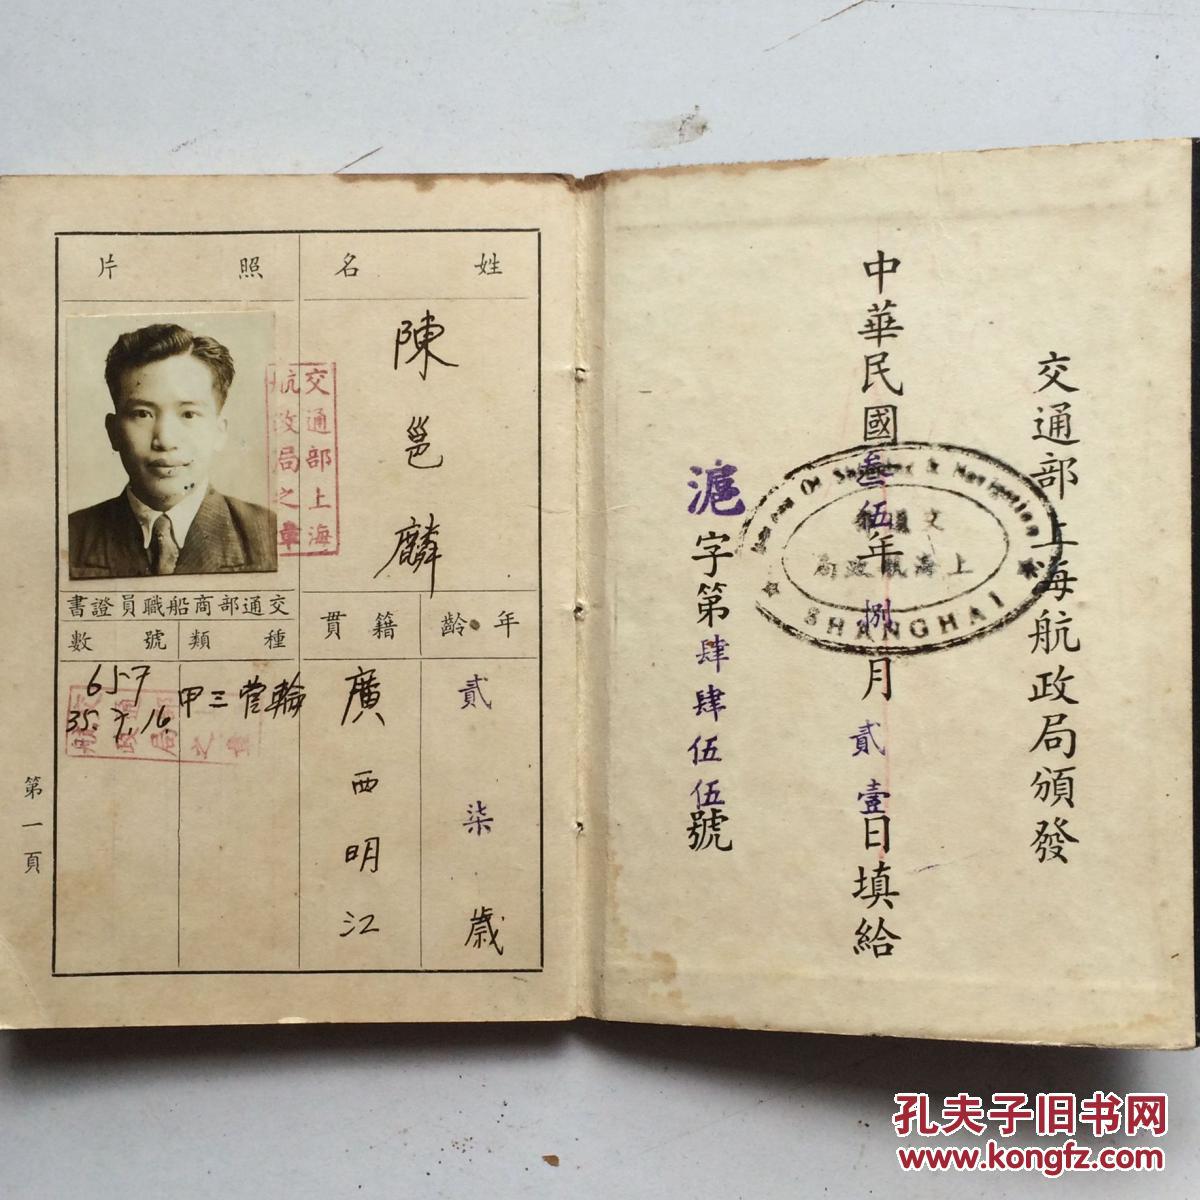 交通部上海航政局頒發
中華民國叁伍年捌月貳壹日填給
滬字第肆肆伍伍號
Bureau Of Shipping & Navigation
交通部
上海航政局
SHANGHAI
姓名
陳邕麟
年齡
貳柒歲
籍貫
廣西明江
照片
交通部上海
航政局之章
交通部商船職員證書
種類
甲三管輪
號數
657
35.7.16.
第一頁
孔夫子旧书网
www.kongfz.com